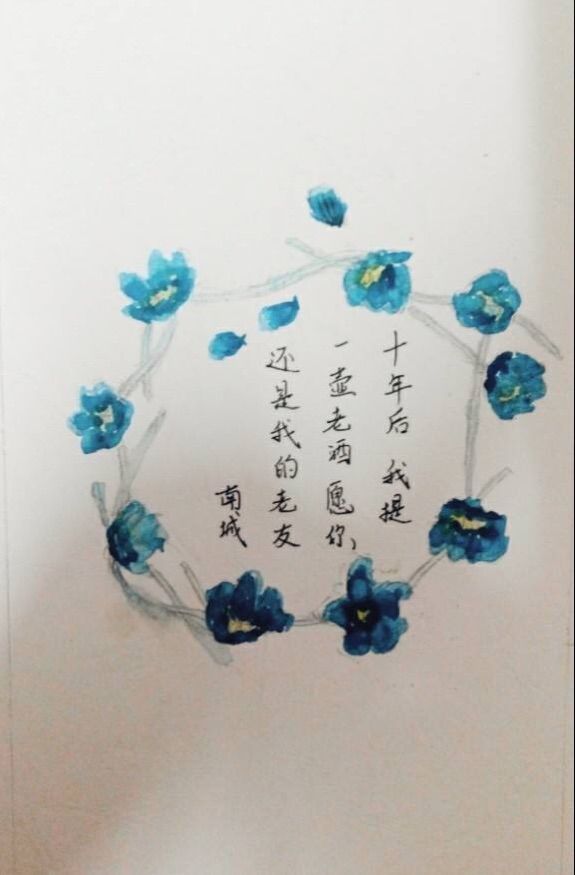 十年后 我提
一壶老酒愿你
还是我的老友
南城